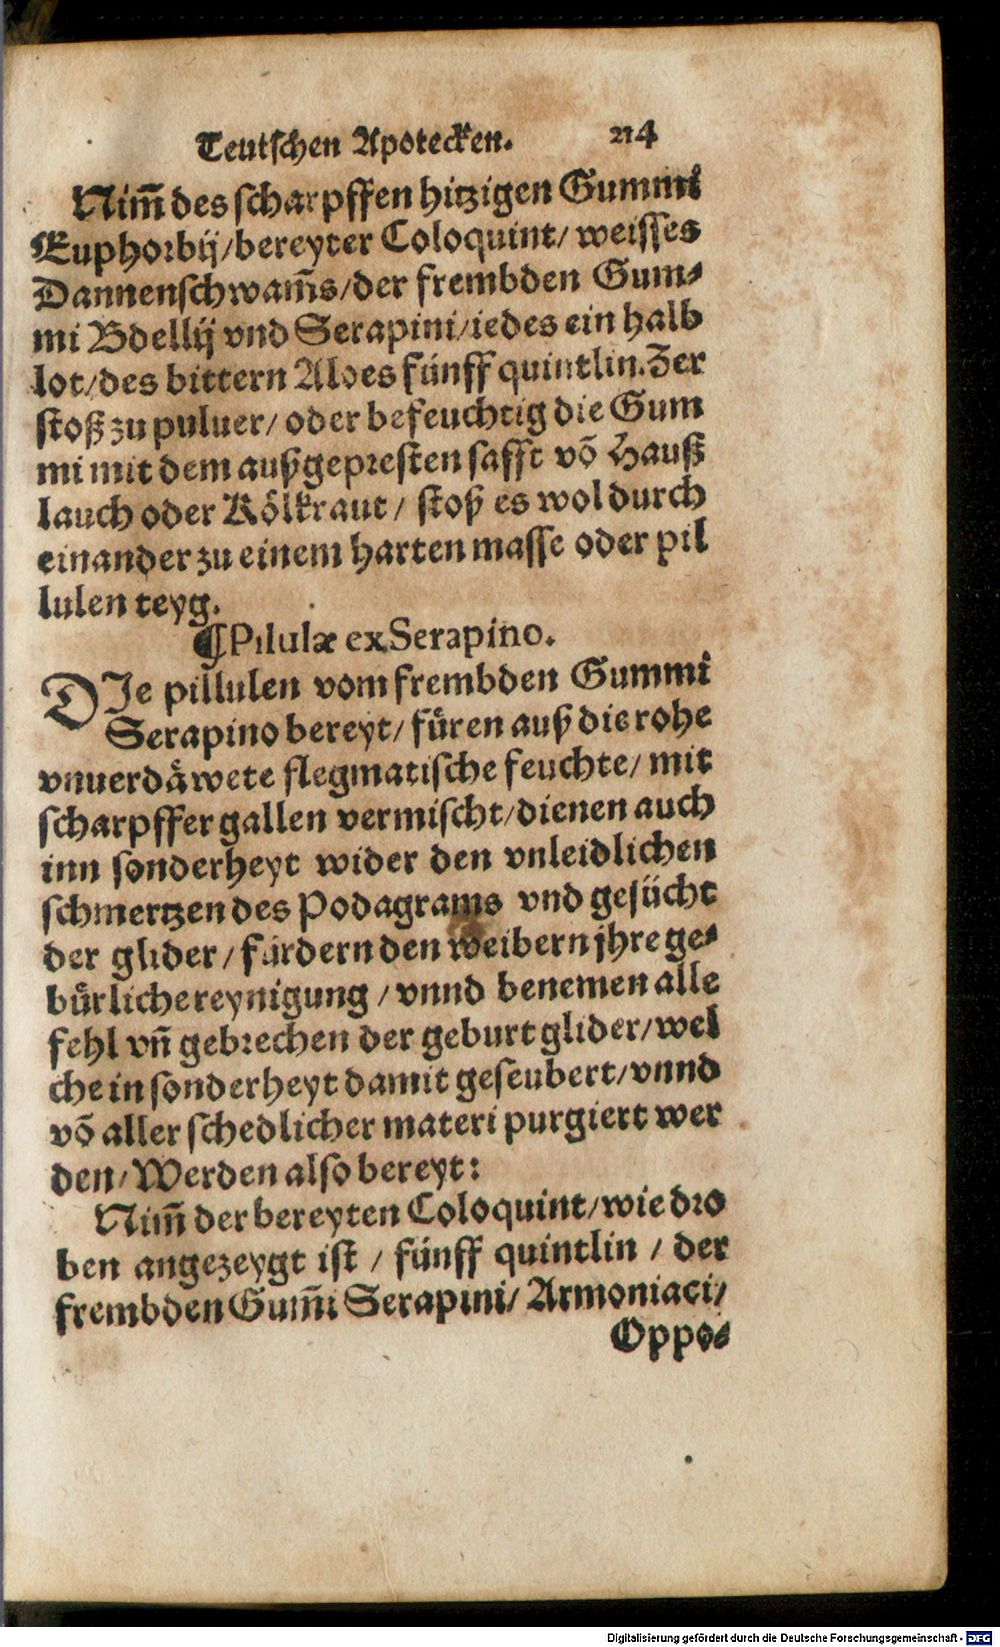 Teutschen Apotecken. 214
Nim̃ des scharpffen hitzigen Gummi
Euphorbij/bereyter Coloquint/ weisses
Dannenschwam̃s/der frembden Gum⸗
mi Bdellij vnd Serapini/iedes ein halb
lot/des bittern Aloes fünff quintlin. Zer
stoß zu puluer/ oder befeuchtig die Gum
mi mit dem außgepresten safft võ Hauß
lauch oder Kölkraut/ stoß es wol durch
einander zu einem harten masse oder pil
lulen teyg.
¶Pilulæ ex Serapino.
DIe pillulen vom frembden Gummi
Serapino bereyt/ fuͤren auß die rohe
vnuerdaͤwete flegmatische feuchte/ mit
scharpffer gallen vermischt/dienen auch
inn sonderheyt wider den vnleidlichen
schmertzen des Podagrams vnd gesücht
der glider/ fürdern den weibern jhre ge⸗
buͤrliche reynigung/ vnnd benemen alle
fehl vñ gebrechen der geburt glider/wel
che in sonderheyt damit geseubert/vnnd
võ aller schedlicher materi purgiert wer
den/Werden also bereyt:
Nim̃ der bereyten Coloquint/wie dro
ben angezeygt ist/ fünff quintlin/ der
frembden Gum̃i Serapini/ Armoniaci/
Oppo⸗
Digitalisierung gefördert durch die Deutsche Forschungsgemeinschaft - DFG